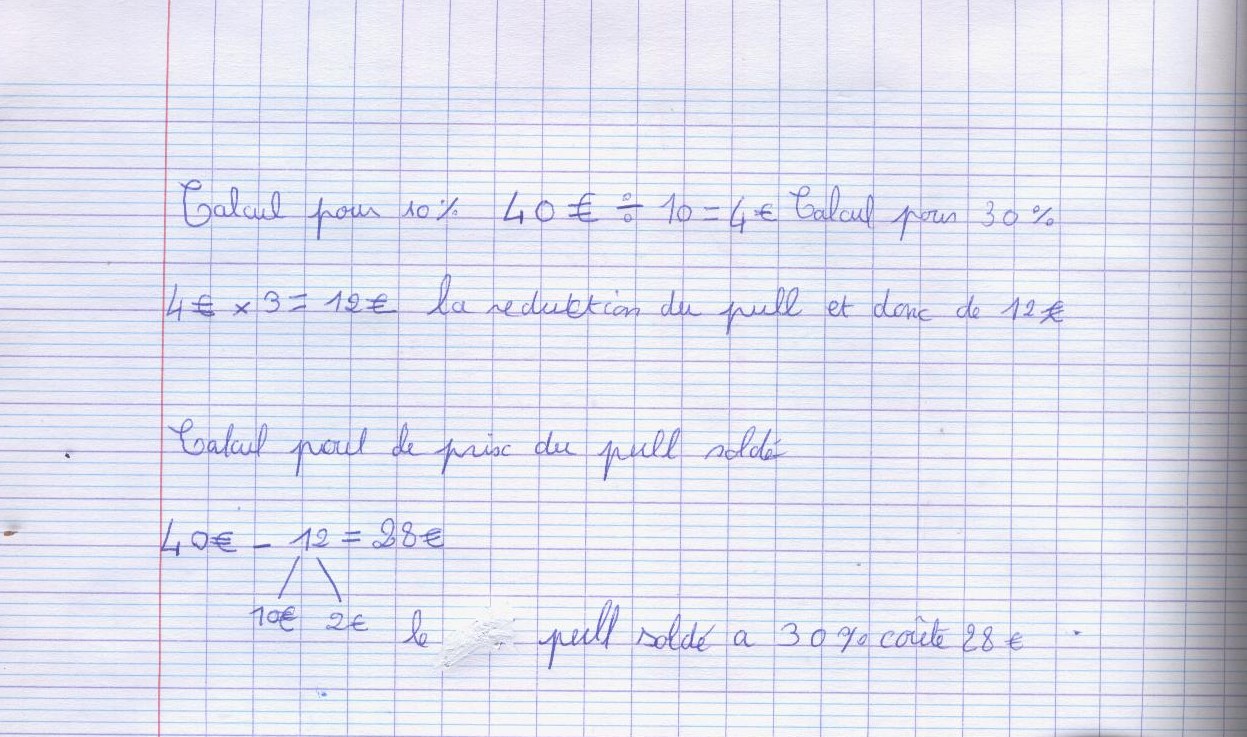 Calcul pour 10% 40€ ÷ 10 = 4€ Calcul pour 30%
4€ × 3 = 12€ la reduktion du pull et donc de 12€
Calcul poul le prix du pull soldé
40€ - 12 = 28€
10€ 2€ le pull soldé a 30% coûte 28€